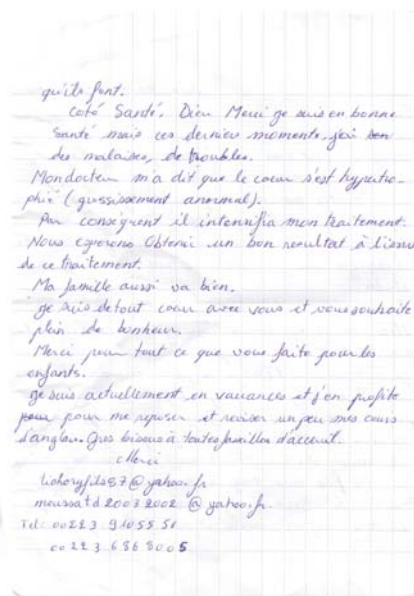 qu'ils font.
coté Santé. Dieu Merci je suis en bonne
Santé mais ces derniers moments, j'ai
des malaises, de troubles.
Mon docteur m'a dit que le cœur s'est hypertro-
phié (grossissement anormal).
Par conséquent il intensifia mon traitement.
Nous esperons Obtenir un bon resultat à l'issu
de ce traitement.
Ma famille aussi va bien.
Je suis de tout cœur avec vous et vous souhaite
plein de bonheur.
Merci pour tout ce que vous faite pour les
enfants.
Je suis actuellement en vacances et j'en profite
pour me reposer et reviser un peu mes cours
d'anglais. Gros bisous à toutes familles d'accueil.
Merci
@yahoo.fr
@ yahoo.fr.
Tel: 00223 9105550
00223 6868005